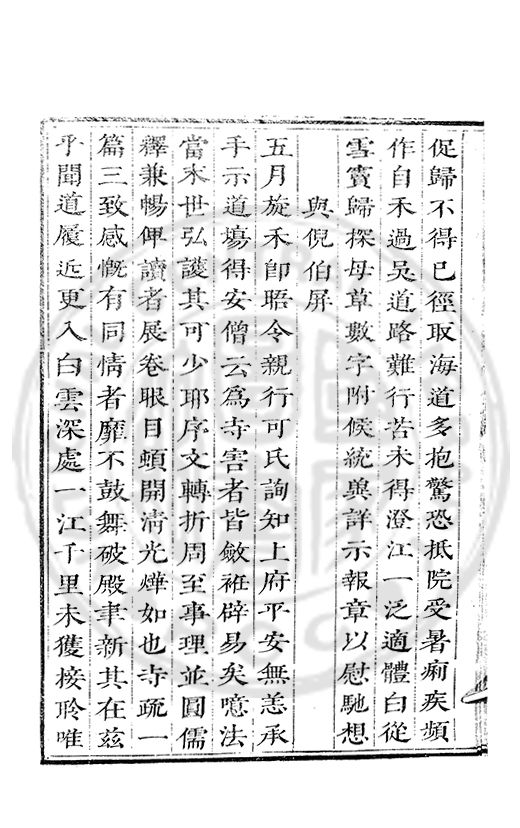 促歸不得已徑取海道多抱驚恐抵院受暑痢疾頻
作自禾過吳道路難行苦未得澄江一泛適體白從
雲賓歸探母草數字附候統與詳示報章以慰馳想
與倪伯屏
五月旋禾卽晤令親行可氏詢知上府平安無恙承
手示道場得安僧云爲寺害者皆斂袵辟易矣噫法
當末世弘護其可少耶序文轉折周至事理並圓儒
釋兼暢俾讀者展卷眼目頓開淸光燁如也寺疏一
篇三致感慨有同情者靡不鼓舞破殿聿新其在茲
乎聞道履近更入白雲深處一江千里未獲接聆唯